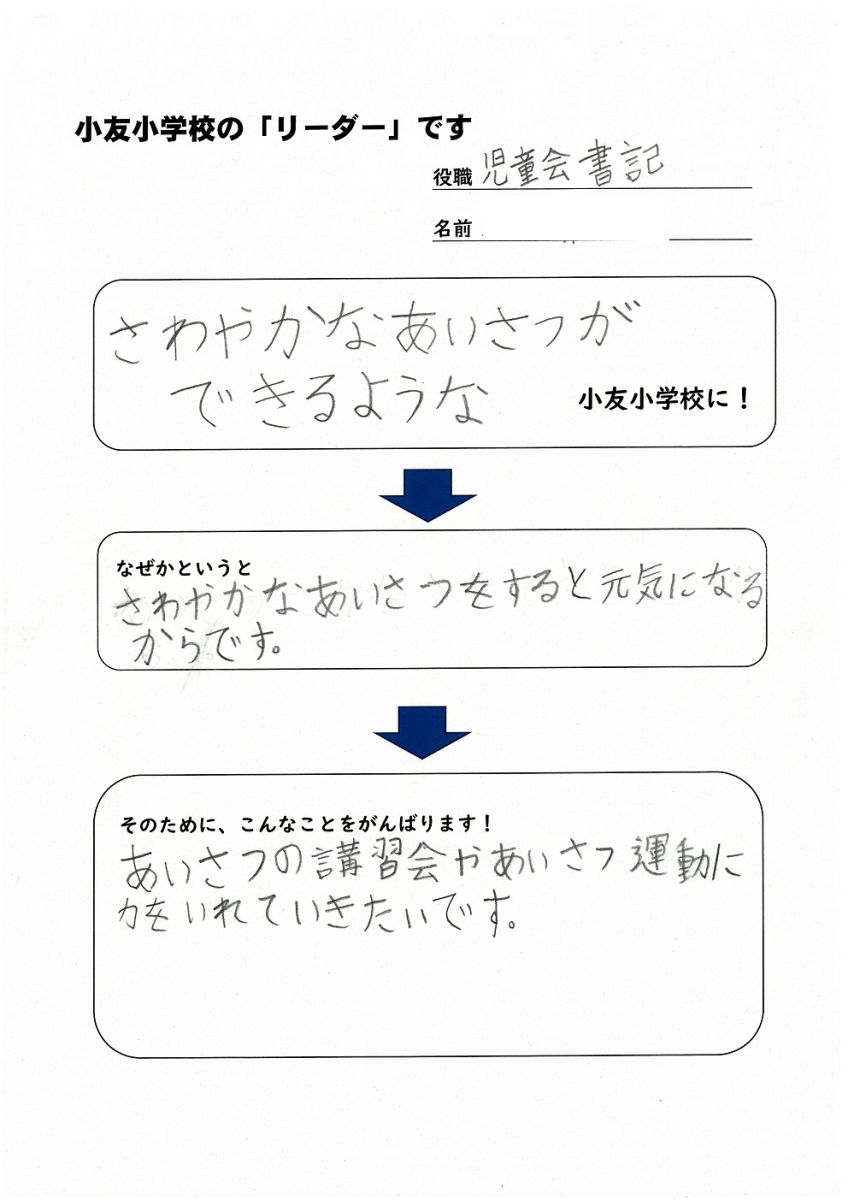 小友小学校の「リーダー」です
役職 児童会書記
名前
さわやかなあいさつが
できるような 小友小学校に！
なぜかというと
さわやかなあいさつをすると元気になる
からです。
そのために、こんなことをがんばります！
あいさつの講習会やあいさつ運動に
力をいれていきたいです。